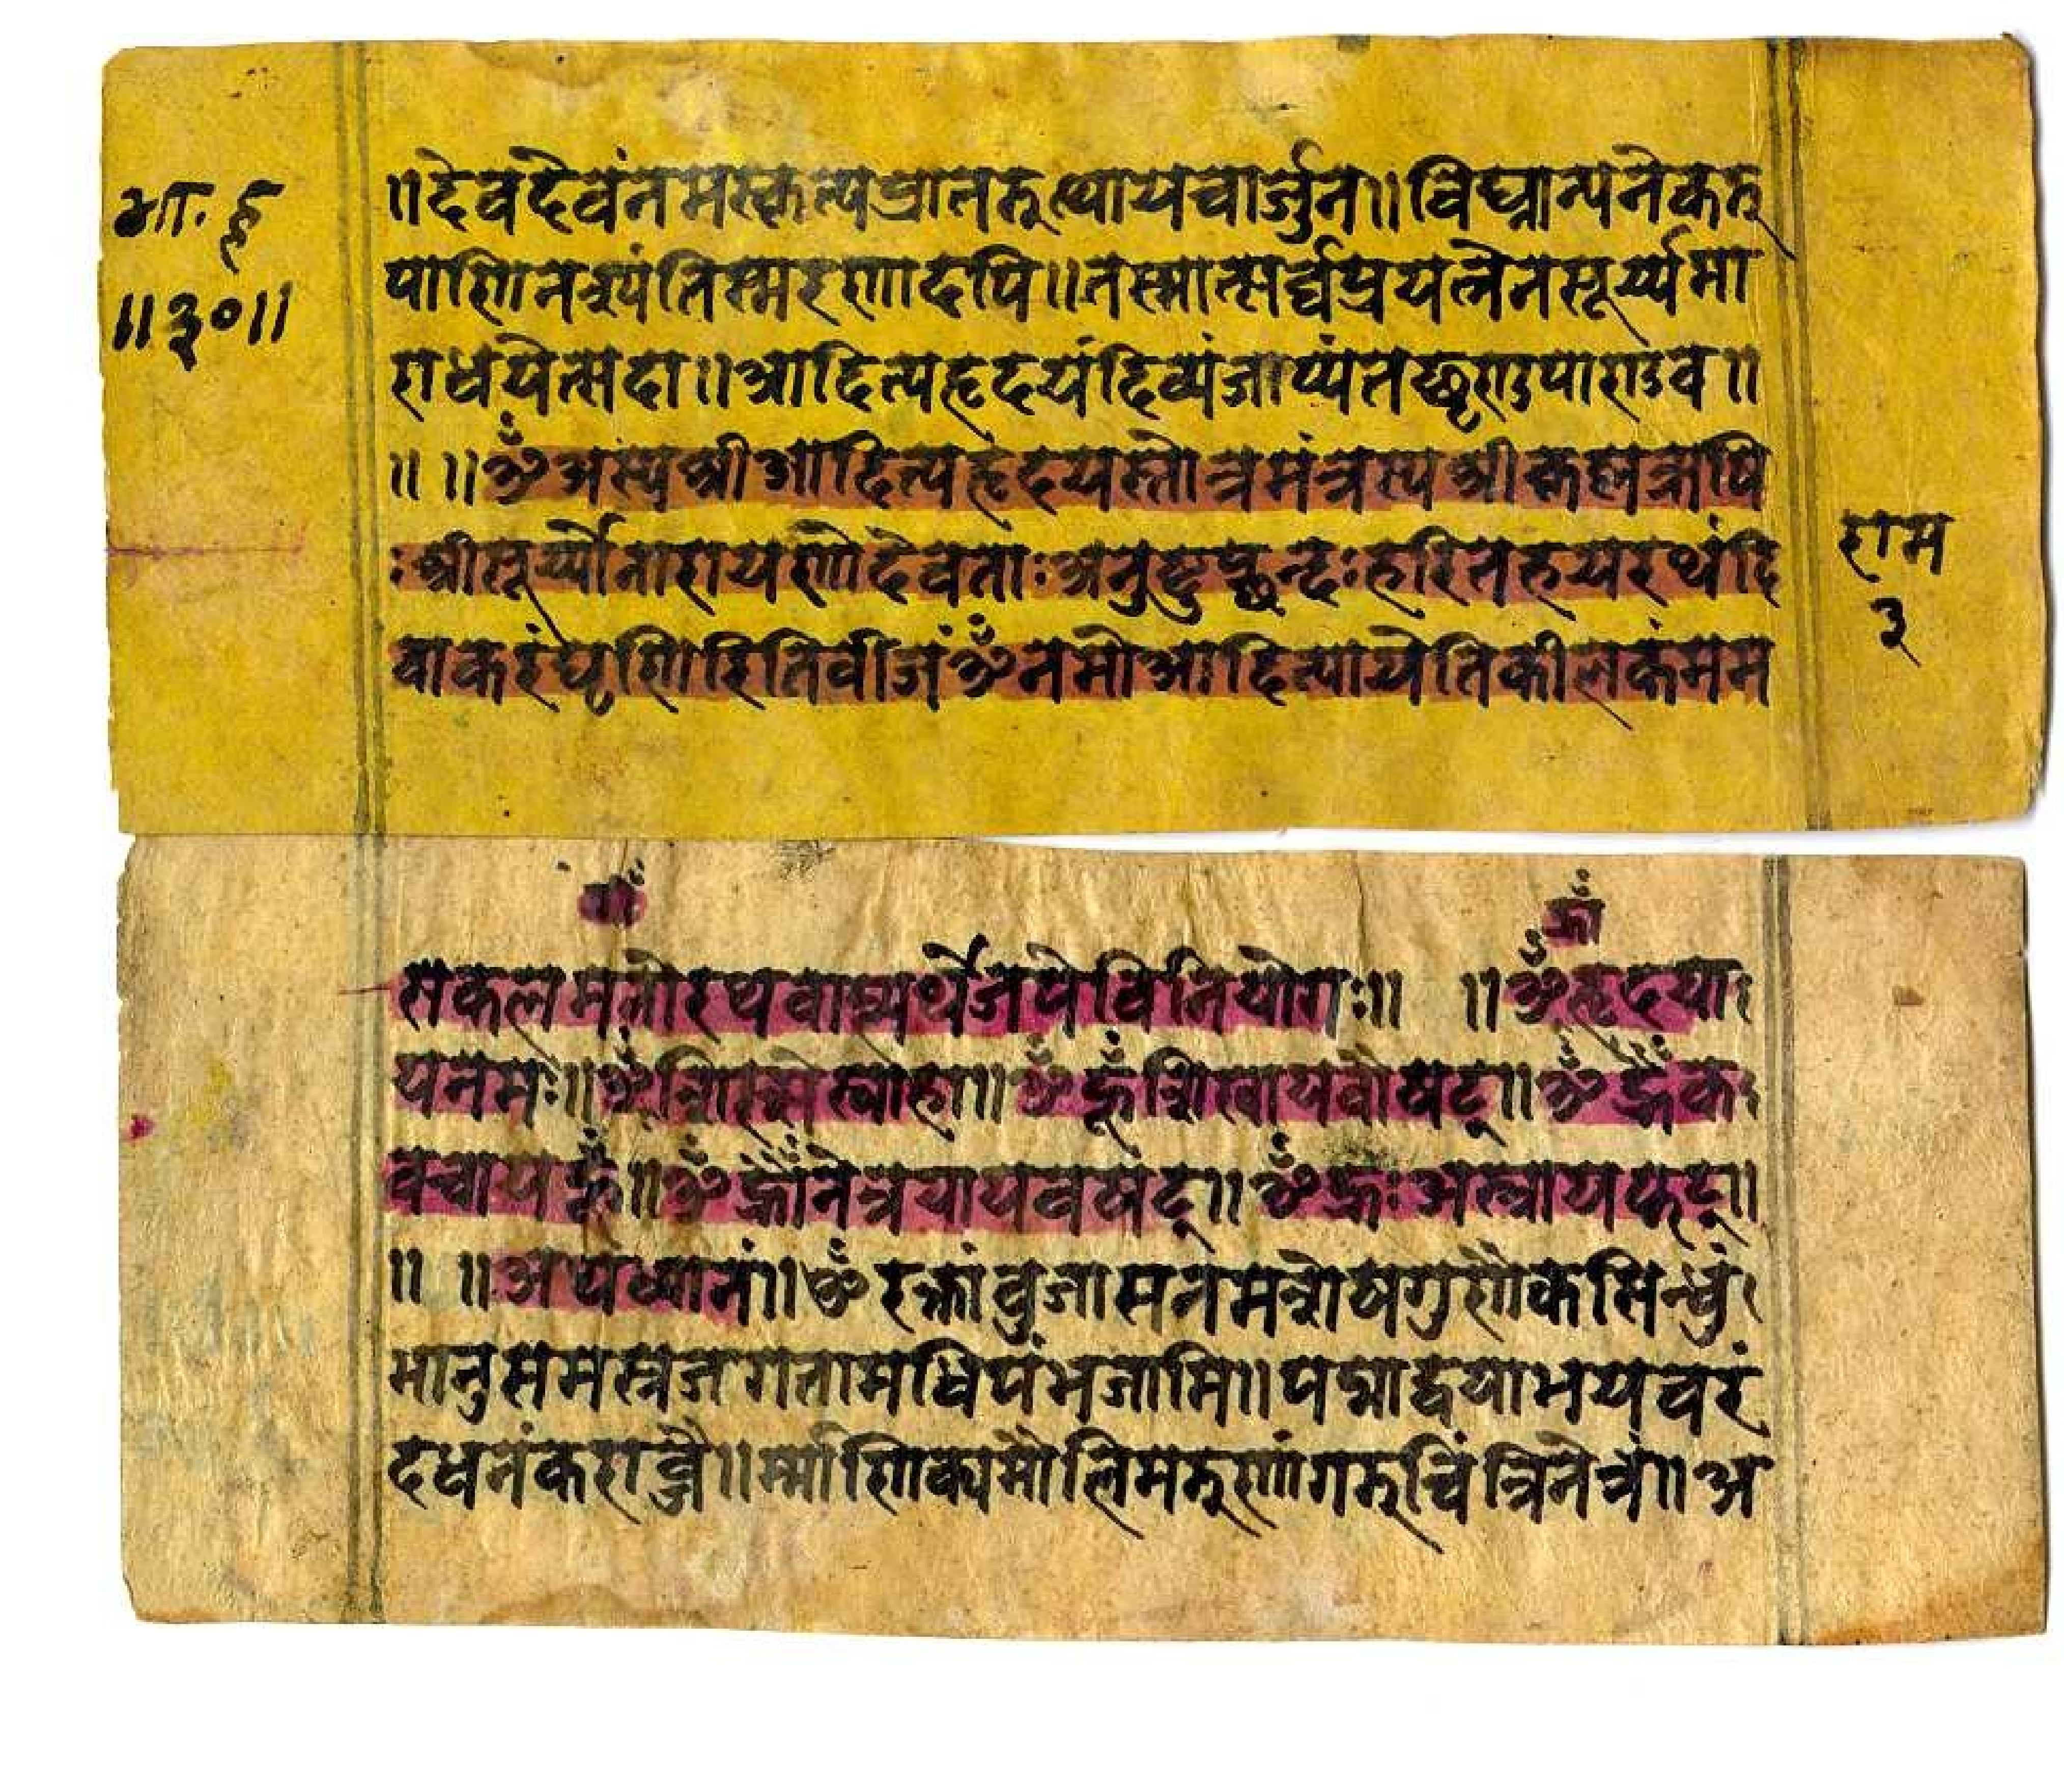 आ. हृ
॥३०॥
॥देवदेवंनमस्कृत्यप्रातरुत्थायचार्जुन॥विघ्नान्यनेकरु
पाणिनश्यंतिस्मरणादपि॥तस्मात्सर्व्वप्रयत्नेनसूर्य्यमा
राधयेत्सदा॥आदित्यहृदयंदिव्यंजाप्यंतच्छृणुपाण्डव॥
॥ ॥ॐअस्यश्रीआदित्यहृदयस्तोत्रमंत्रस्यश्रीकृष्णऋषि
:श्रीसूर्य्योनारायणोदेवताःअनुष्टुप्छन्दःहरितहयरथंदि
वाकरंघृणिरितिवीजंॐनमोआदित्यायेतिकीलकंमम
राम
३
सकलमनोरथवाप्त्यर्थेजपेविनियोगः॥ ॥ॐहृदया
ह्राँ
यनमः॥ॐशिरसेस्वाहा॥ॐह्रूँशिखायवौषट्॥ॐह्रैँक
वचायहूँ॥ॐह्रौँनेत्रत्रयायवषट्॥ॐह्रःअस्त्रायफट्॥
॥ ॥अथध्यानं॥ॐरक्तांवुजासनमशेषगुणैकसिन्धुं
भानुसमस्तजगतामधिपंभजामि॥पद्माद्वयाभयवरं
दधतंकराब्जै॥र्म्माणिक्यमौलिमरुणांगरुचिंत्रिनेत्रं॥अ